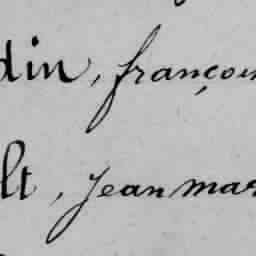 din, françois
lt, jean mar